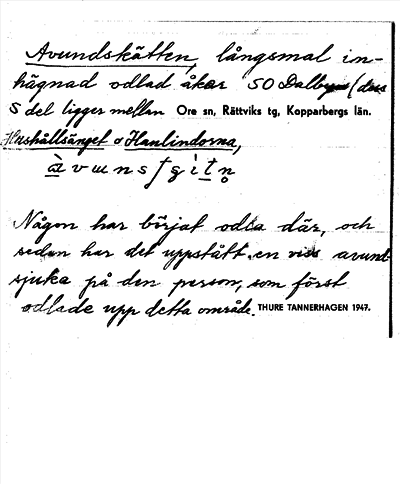 Avundskätten, långsmal in-
hägnad odlad åker SO Dalbyn (dess
S del ligger mellan Ore sn, Rättviks tg, Kopparbergs län.
Hushållsänget o Hanlindorna,
Någon har börjat odla där, och
sedan har det uppstått en viss avund-
sjuka på den person, som först
odlade upp detta område. THURE TANNERHAGEN 1947.